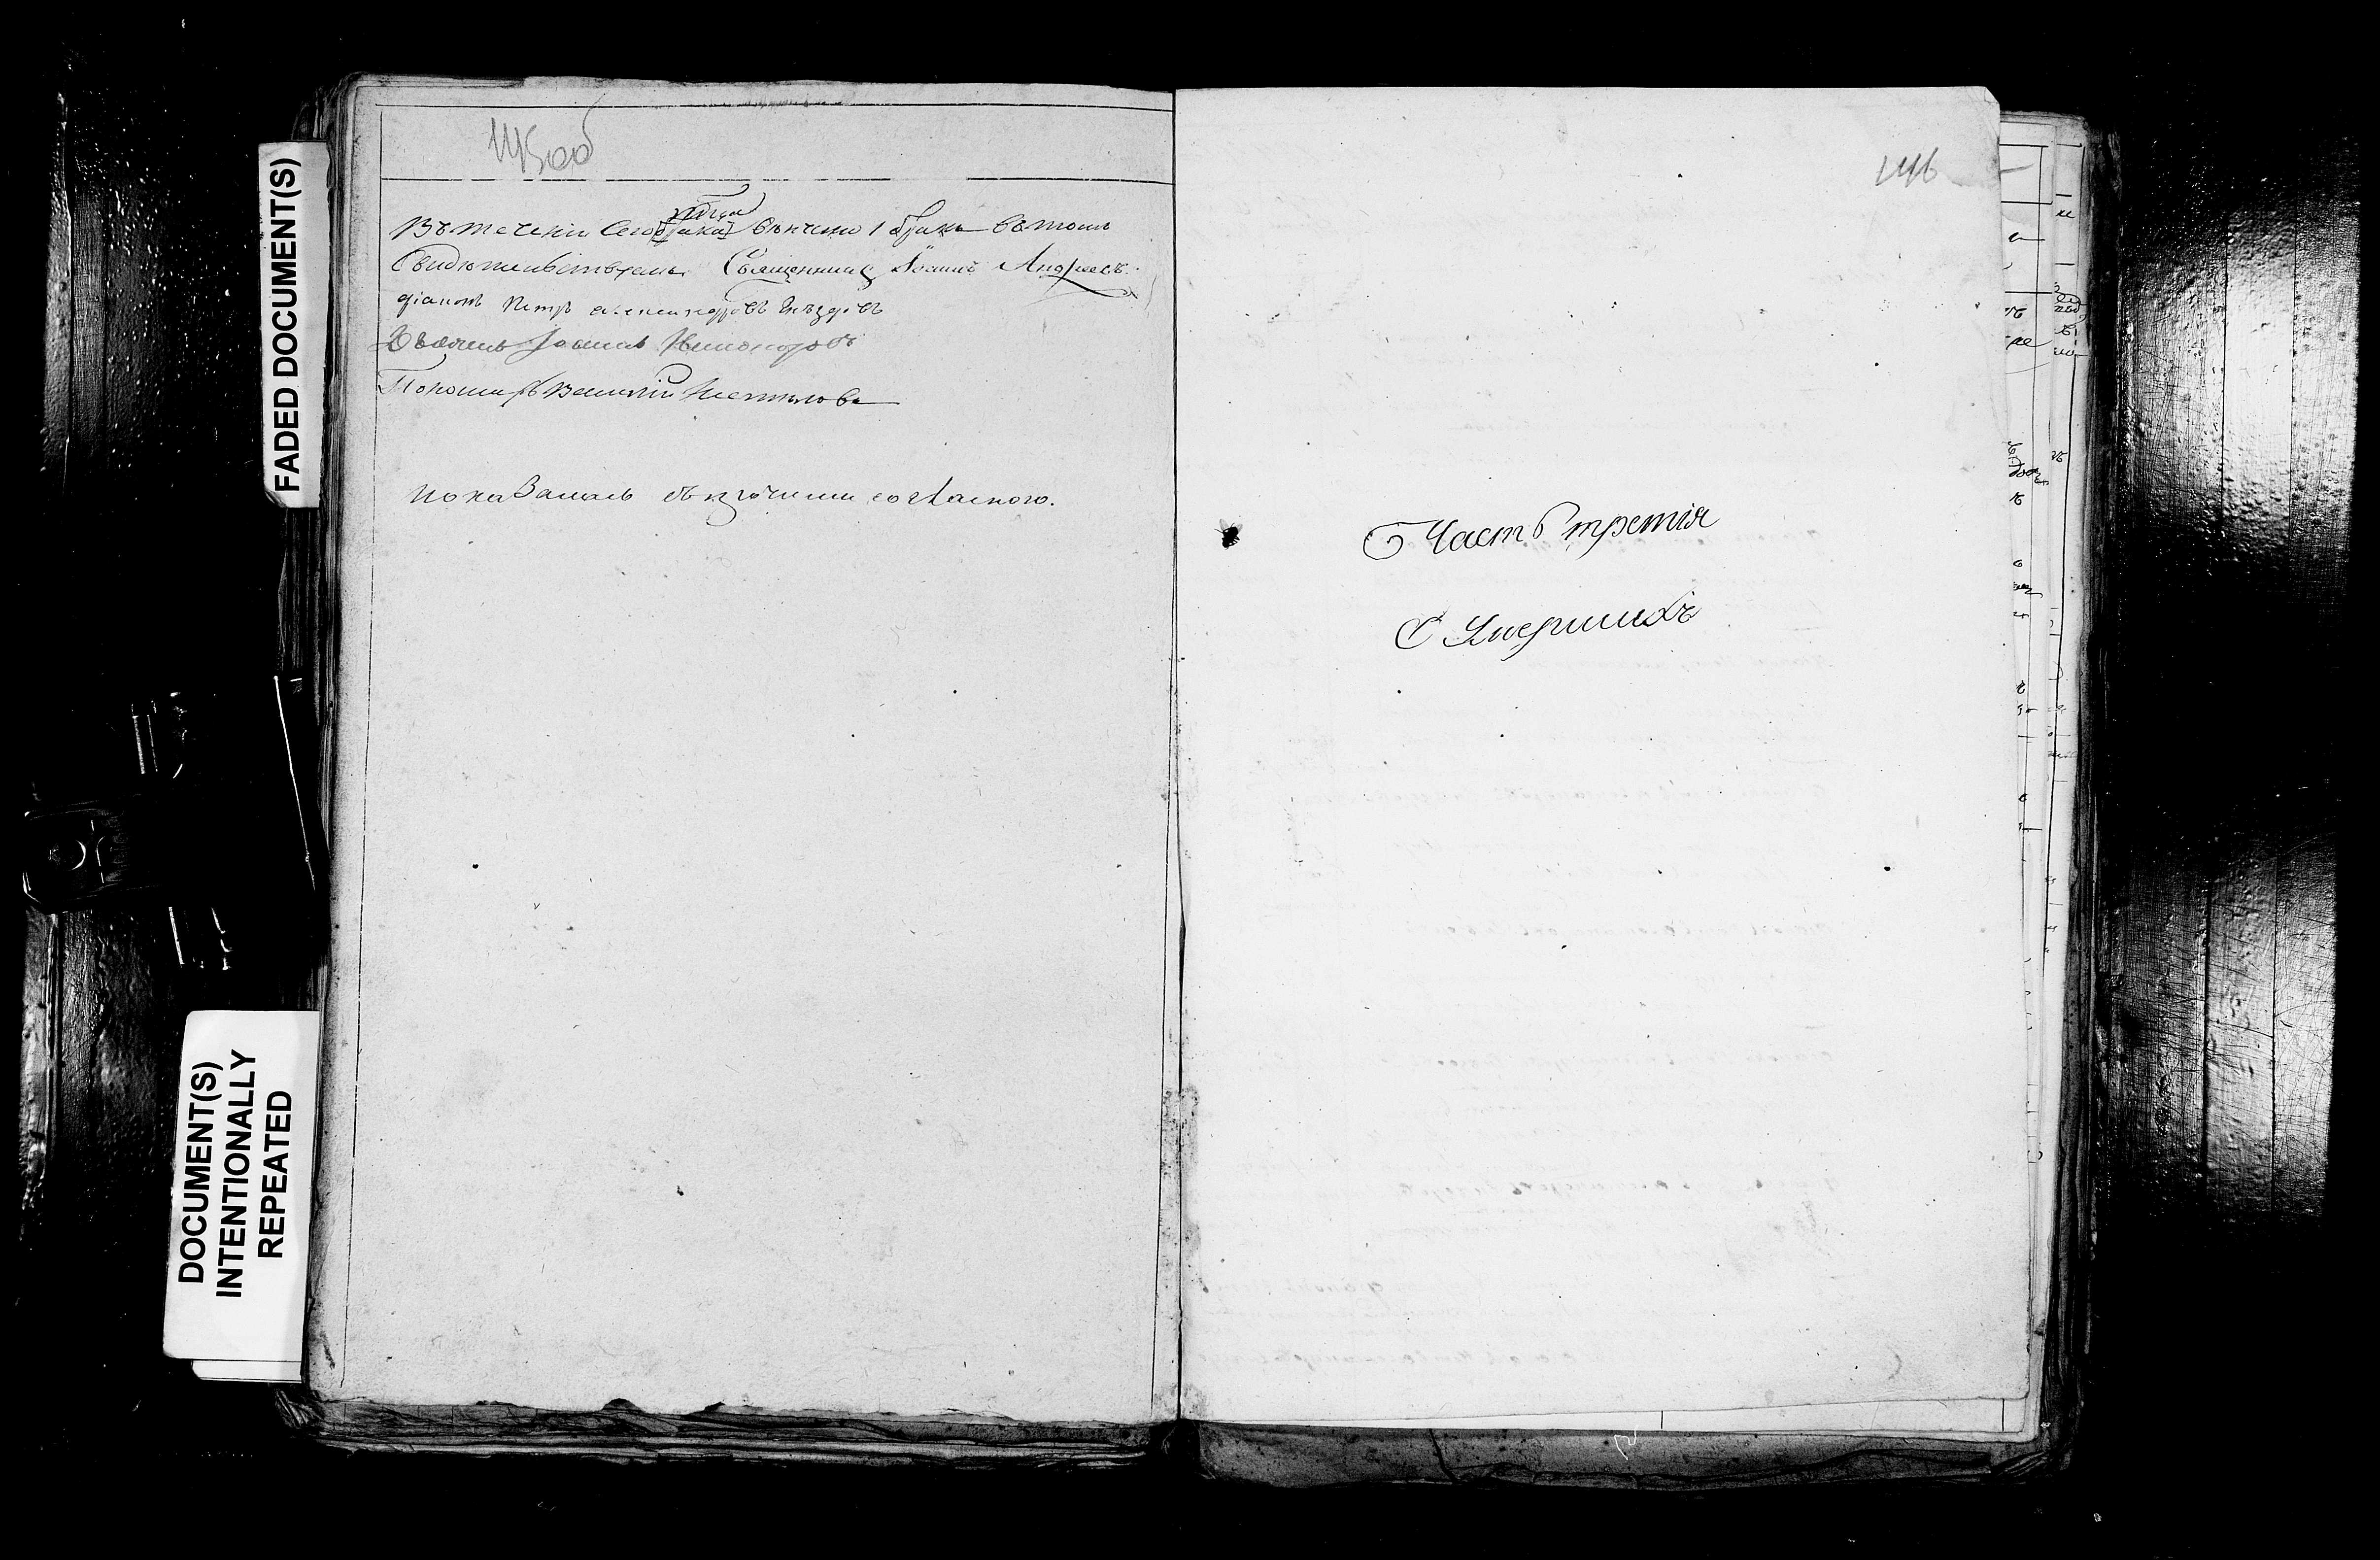 FADED DOCUMENT(S)
DOCUMENT(S)
INTENTIONALLY
REPEATED
145об
Въ течении сего года венчено 1 бракъ въ томъ
Свидетельствуемъ Священникъ Иоаннъ Андреевъ
діаконъ Петръ александровъ
Дьячекъ Іоаннъ Никаноровъ
Пономарь Василій
показаломъ согласною.
146
Часть третія
О Умершихъ